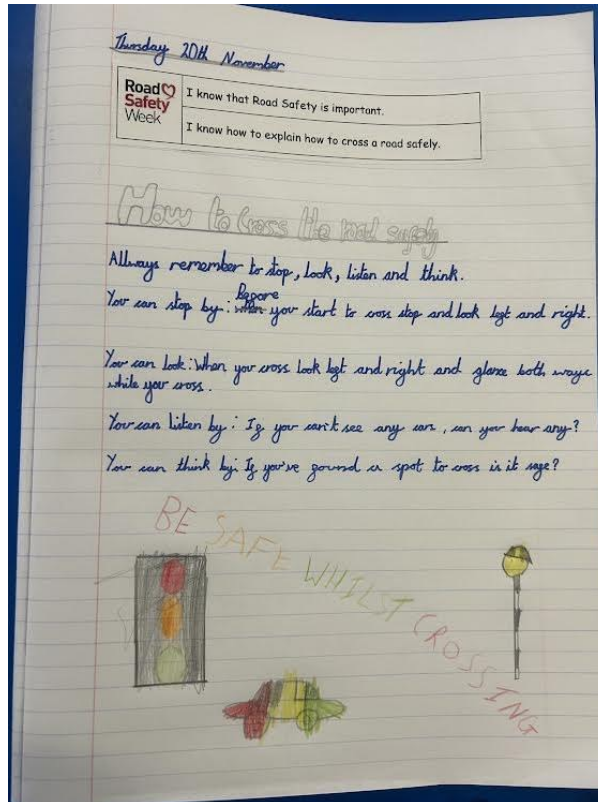 Thursday 20th November
Road
Safety
Week
I know that Road Safety is important.
I know how to explain how to cross a road safely.
How to Cross the road safely
Allways remember to stop, look, listen and think.
You can stop by: when Before you start to cross stop and look left and right.
You can look: When you cross look left and right and glance both ways
while you cross.
You can listen by: If you can't see any cars, can you hear any?
You can think by: If you've found a spot to cross is it safe?
BE SAFE WHILST CROSSING